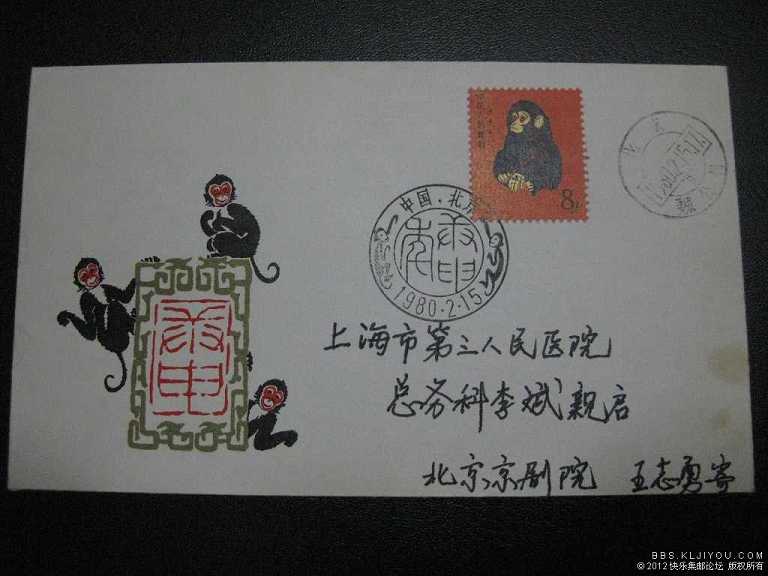 8分
中国·北京
庚申
1980·2·15
庚申
上海市第三人民医院
总务科李斌親启
北京京剧院 王志勇寄
BBS.KLJIYOU.COM
©2012快乐集邮论坛 版权所有